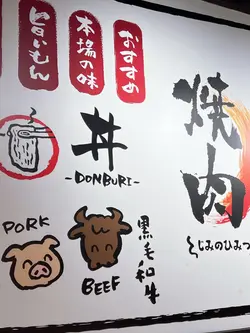 おすすめ
本場の味
旨いもん
焼肉
くじみのひみつ
丼
-DONBURI-
黒毛和牛
PORK
BEEF